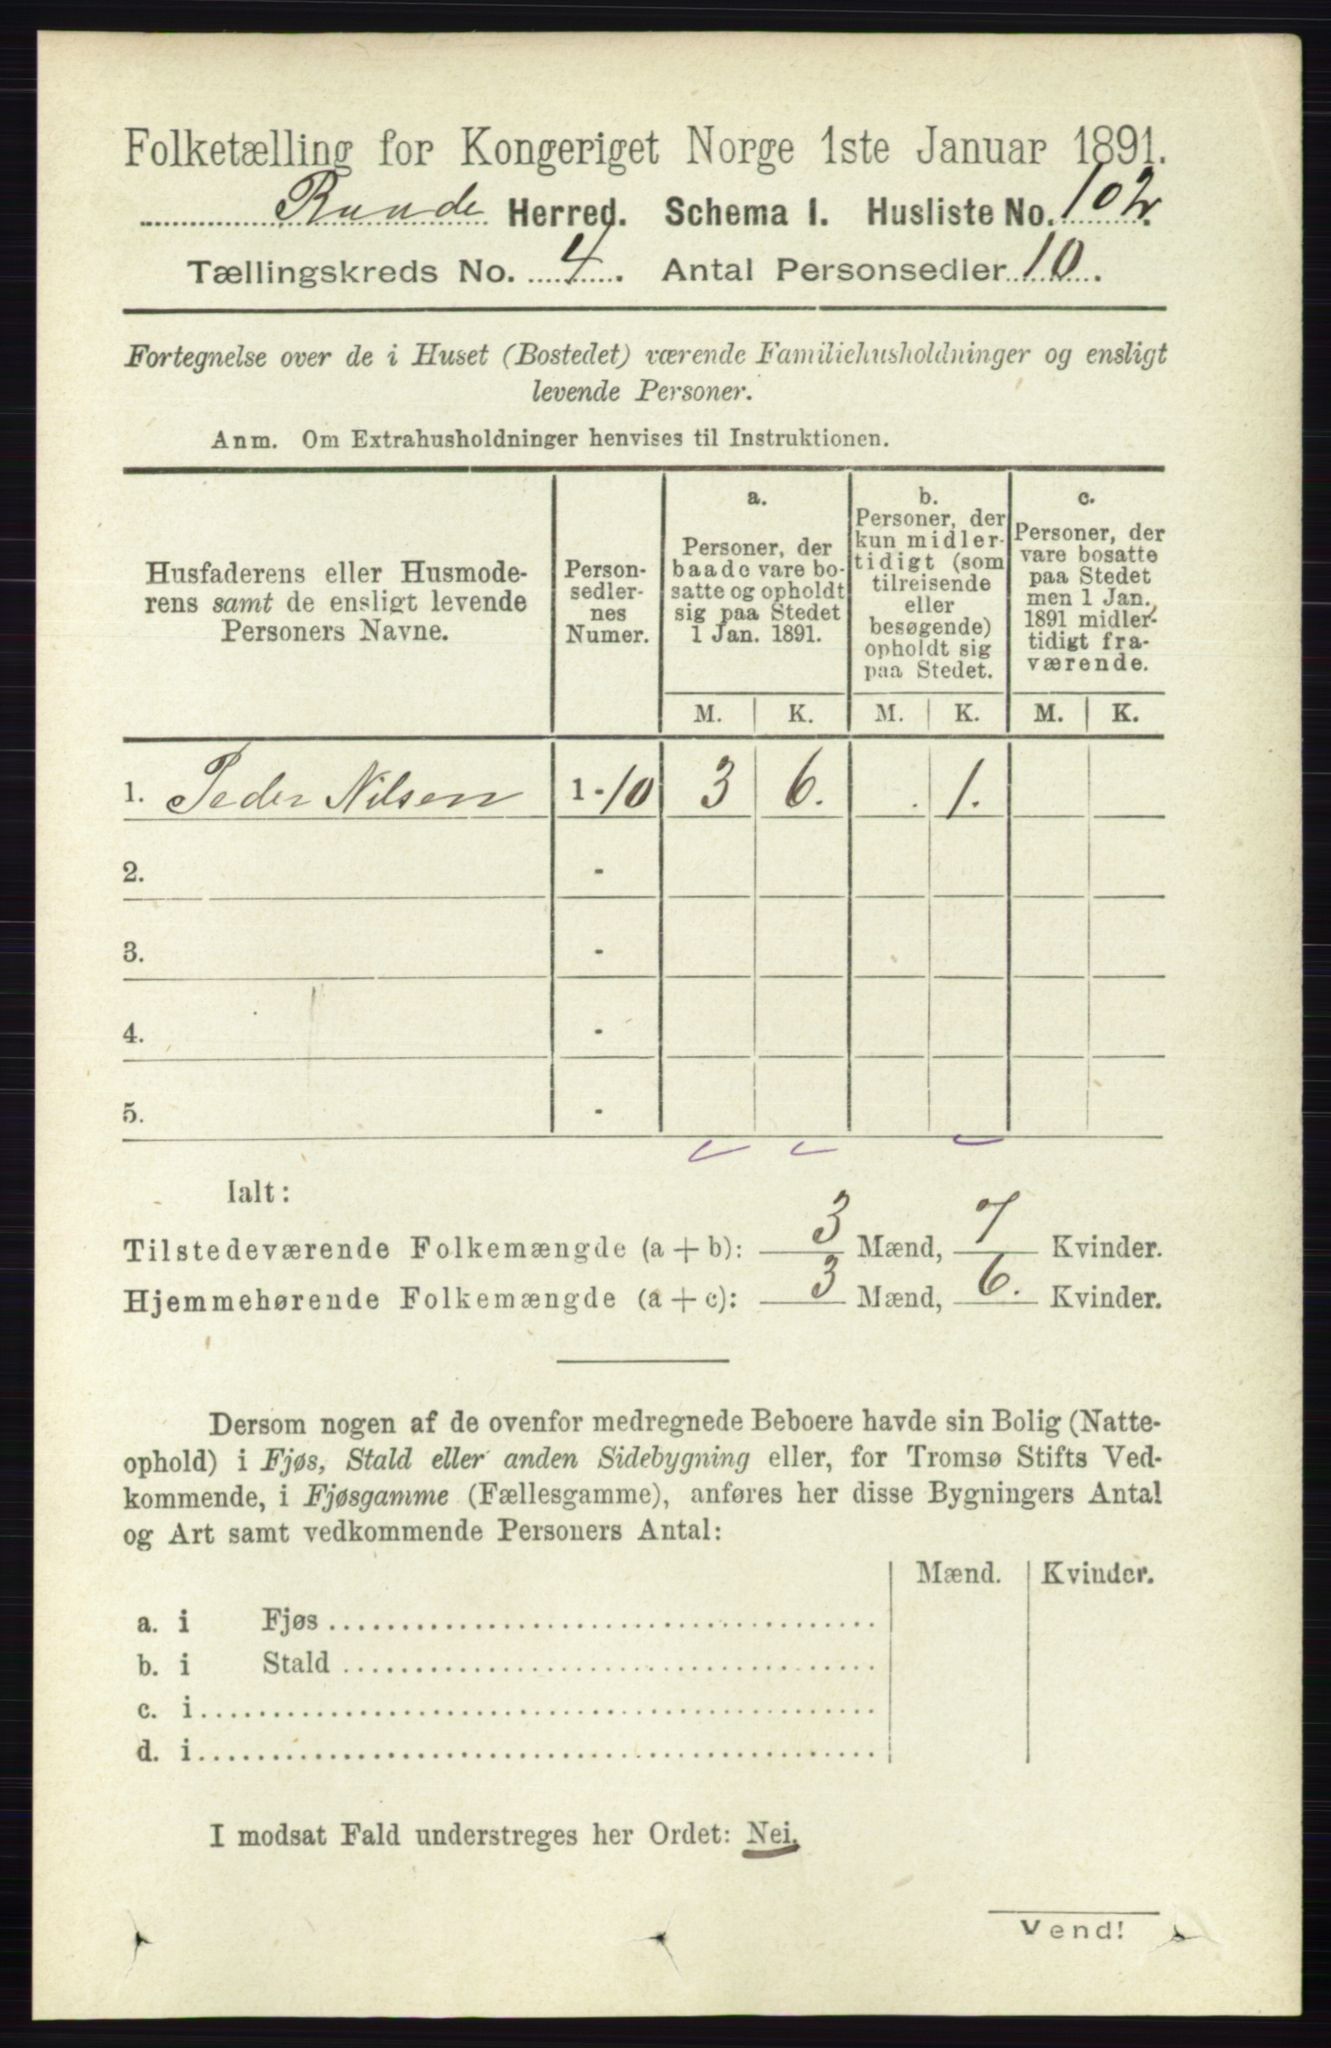 Folketælling for Kongeriget Norge 1ste Januar 1891.
Raade Herred. Schema I. Husliste No. 102.
Tællingskreds No. 4. Antal Personsedler 10.
Fortegnelse over de i Huset (Bostedet) værende Familiehusholdninger og ensligt
levende Personer.
Anm. Om Extrahusholdninger henvises til Instruktionen.
Husfaderens eller Husmode-
rens samt de ensligt levende
Personers Navne.
Person-
sedler-
nes
Numer.
a.
Personer, der
baade vare bo-
satte og opholdt
sig paa Stedet
1 Jan. 1891.
b.
Personer, der
kun midler-
tidigt (som
tilreisende
eller
besøgende)
opholdt sig
paa Stedet.
c.
Personer, der
vare bosatte
paa Stedet
men 1 Jan.
1891 midler-
tidigt fra-
værende.
M. K. M. K. M. K.
1. Peder Nilsen 1 - 10 3 6. . 1.
2. -
3. -
4. -
5. -
Ialt:
Tilstedeværende Folkemængde (a + b): 3 Mænd, 7 Kvinder.
Hjemmehørende Folkemængde (a + c): 3 Mænd, 6. Kvinder.
Dersom nogen af de ovenfor medregnede Beboere havde sin Bolig (Natte-
ophold) i Fjøs, Stald eller anden Sidebygning eller, for Tromsø Stifts Ved-
kommende, i Fjøsgamme (Fællesgamme), anføres her disse Bygningers Antal
og Art samt vedkommende Personers Antal:
Mænd. Kvinder.
a. i Fjøs
b. i Stald
c. i
d. i
I modsat Fald understreges her Ordet: Nei.
Vend!